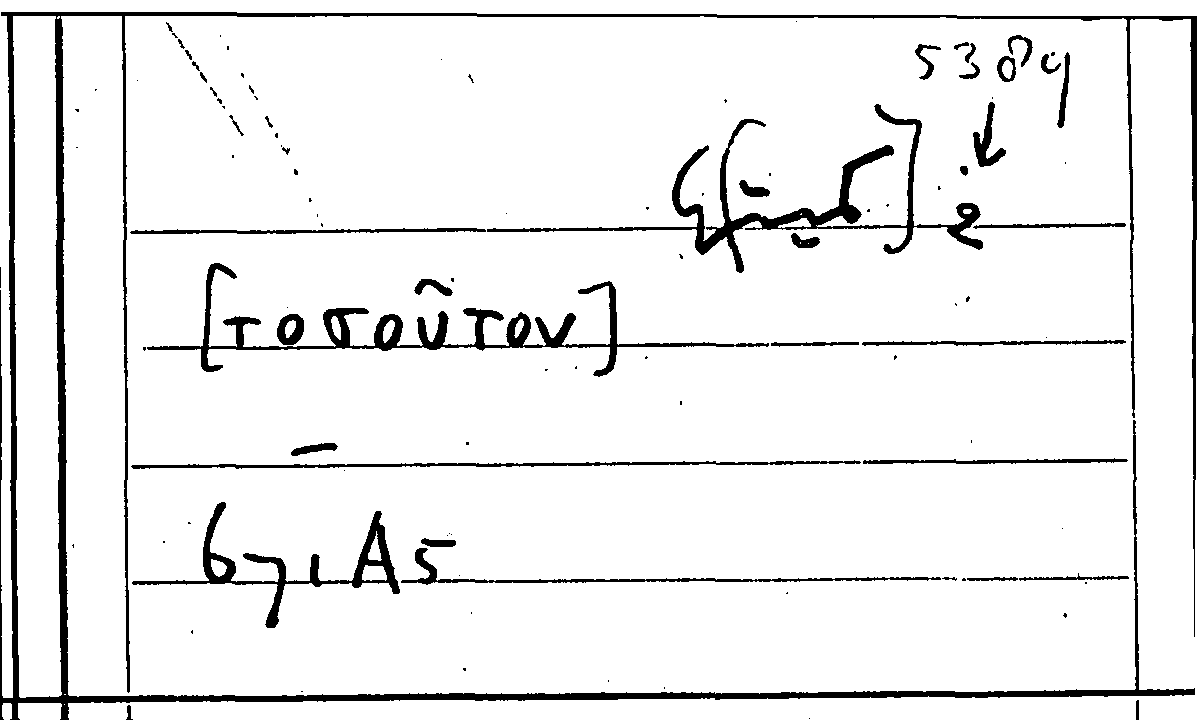 5389
[τοσοῦτον]
671A5